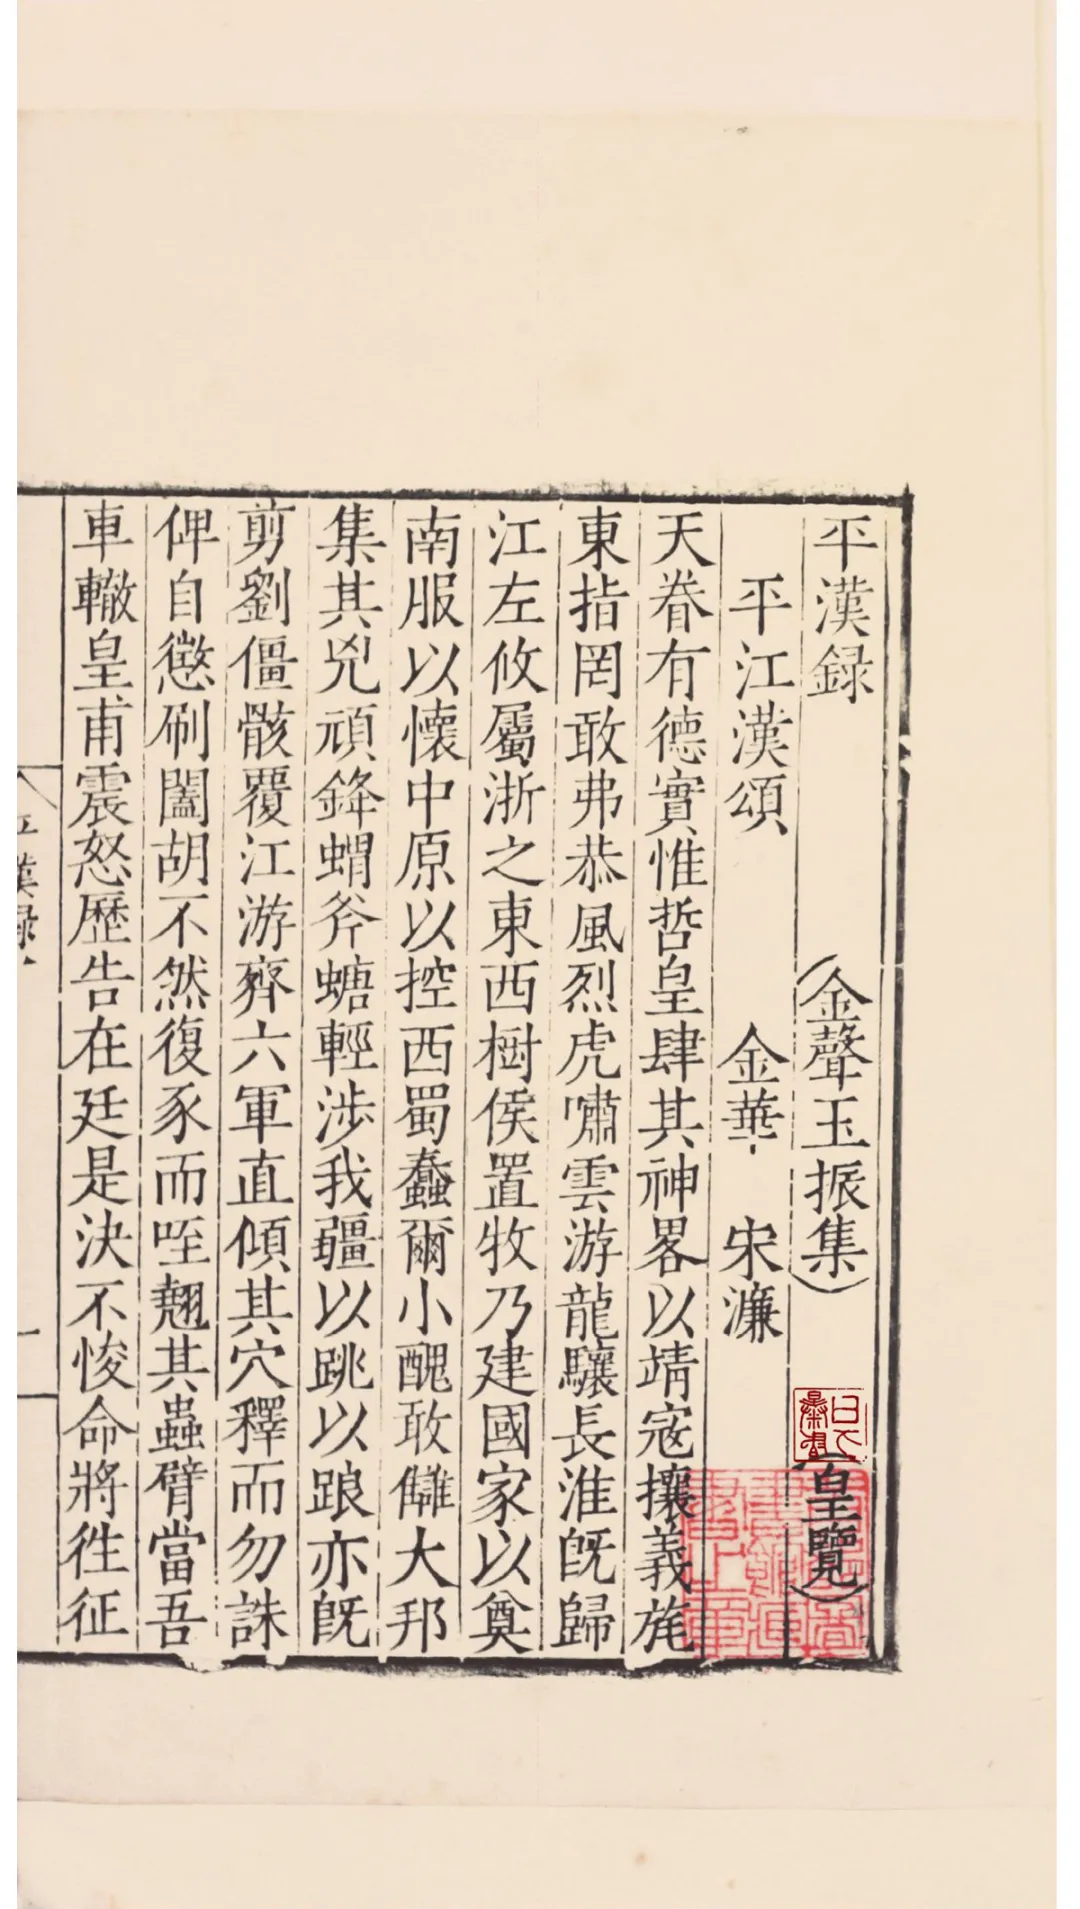 平漢録 (金聲玉振集) (皇覽)
平江漢頌 金華 宋濂
天眷有德實惟哲皇肆其神畧以靖寇攘義旄
東指罔敢弗恭風烈虎嘯雲游龍驤長淮旣歸
江左攸屬浙之東西樹侯置牧乃建國家以奠
南服以懷中原以控西蜀蠢爾小醜敢讎大邦
集其兇頑鋒蝟斧螗輕涉我疆以跳以踉亦旣
剪劉僵骸覆江游齊六軍直傾其穴釋而勿誅
俾自懲刷闔胡不然復豕而咥翹其蟲臂當吾
車轍皇甫震怒歷告在廷是決不悛命將徃征
平漢録
一